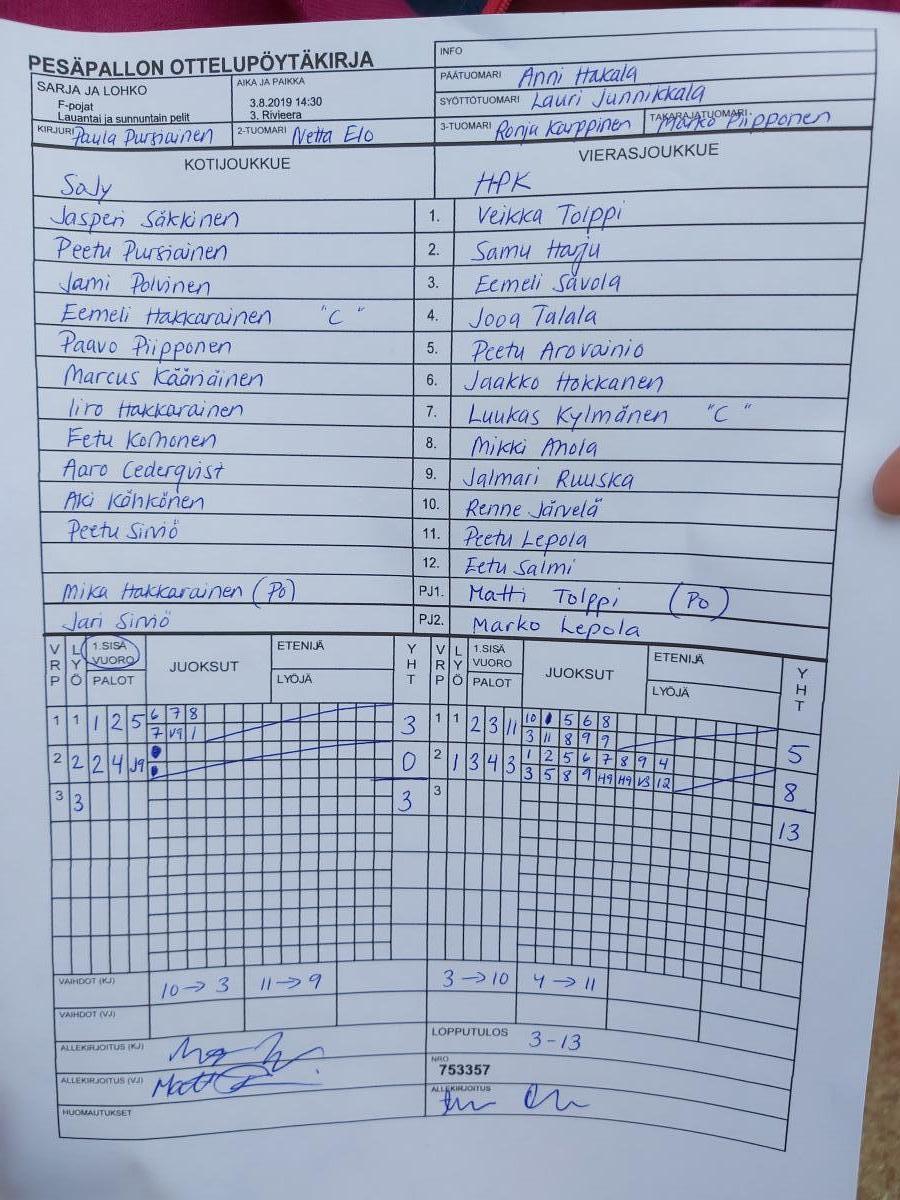 PESÄPALLON OTTELUPÖYTÄKIRJA
INFO
SARJA JA LOHKO
F-pojat
Lauantai ja sunnuntain pelit
AIKA JA PAIKKA
3.8.2019 14:30
3. Rivieera
PÄÄTUOMARI Anni Hakala
SYÖTTÖTUOMARI Lauri Junnikkala
KIRJURI Paula Pursiainen 2-TUOMARI Netta Elo 3-TUOMARI Ronja Karppinen TAKARAJATUOMARI Marko Piipponen
KOTIJOUKKUE VIERASJOUKKUE
SaJy HPK
Jasperi Säkkinen 1. Veikka Tolppi
Peetu Pursiainen 2. Samu Harju
Jami Polvinen 3. Eemeli Savola
Eemeli Hakkarainen "C" 4. Jooa Talala
Paavo Piipponen 5. Peetu Arovainio
Marcus Kääriäinen 6. Jaakko Hokkanen
Iiro Hakkarainen 7. Luukas Kylmänen "C"
Eetu Komonen 8. Mikki Ahola
Aaro Cederqvist 9. Jalmari Ruuska
Aki Kähkönen 10. Renne Järvelä
Peetu Sirviö 11. Peetu Lepola
12. Eetu Salmi
Mika Hakkarainen (Po) PJ1. Matti Tolppi (Po)
Jari Sirviö PJ2. Marko Lepola
VRP LYÖ 1.SISÄ VUORO PALOT JUOKSUT ETENIJÄ LYÖJÄ YHT VRP LYÖ 1.SISÄ VUORO PALOT JUOKSUT ETENIJÄ LYÖJÄ YHT
1 1 1 2 5 6 7 8 3 1 1 2 3 11 10 5 6 8 5
7 V9 1 3 11 8 9 9
2 2 2 4 J9 0 2 1 3 4 3 1 2 5 6 7 8 9 4 8
3 5 8 9 H9 H9 V3 12
3 3 3 3 13
VAIHDOT (KJ) 10→3 11→9 3→10 4→11
VAIHDOT (VJ)
ALLEKIRJOITUS (KJ) LOPPUTULOS 3-13
ALLEKIRJOITUS (VJ) NRO
753357
HUOMAUTUKSET ALLEKIRJOITUS